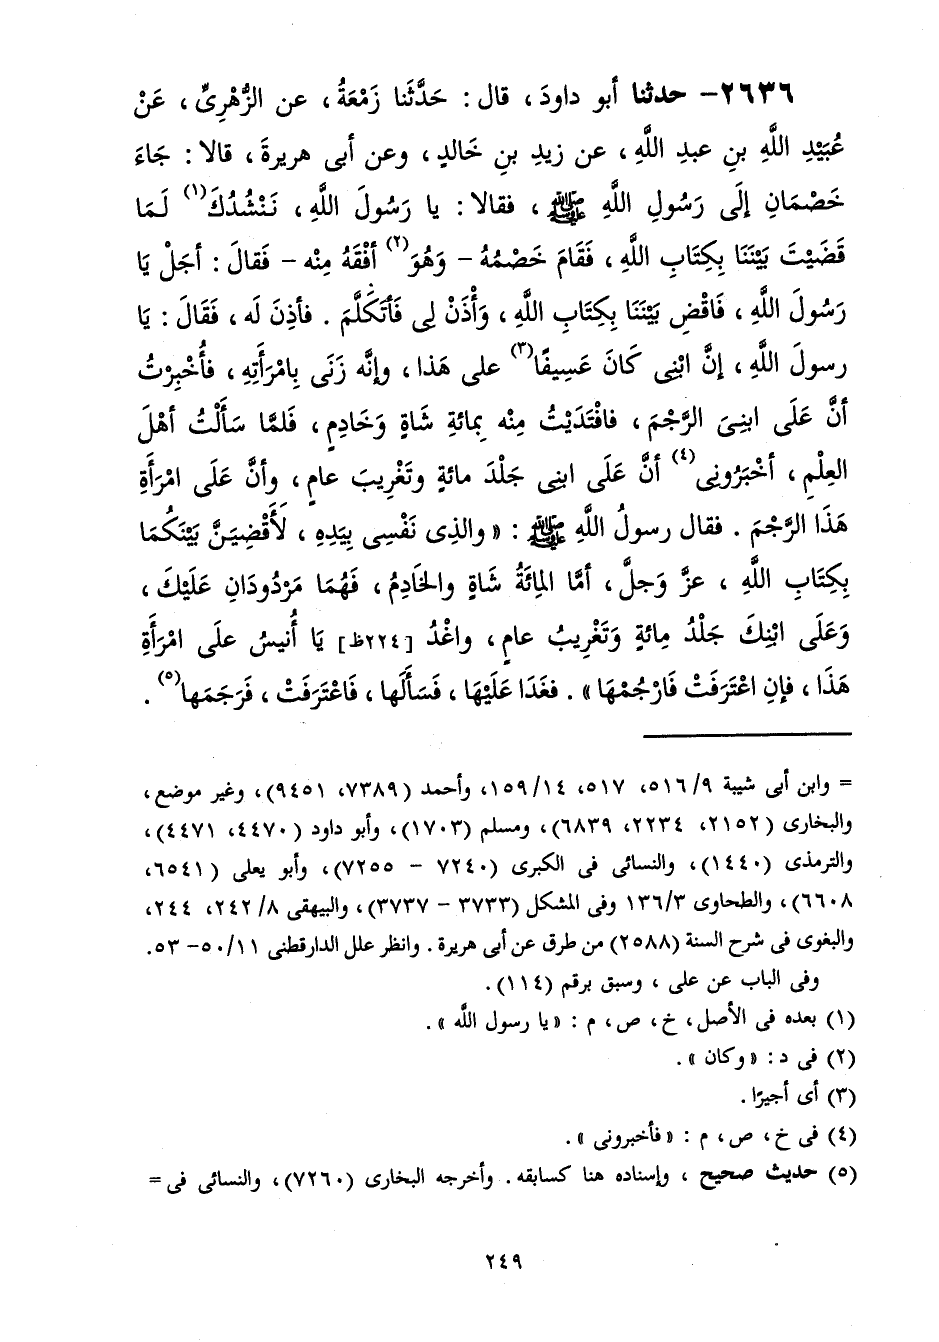 ٢٦٣٦– حدثنا أبو داودَ ، قال : حَدَّثَنا زَمْعَةُ ، عن الزُّهْرِىِّ ، عَنْ
عُبَيْدِ اللَّهِ بنِ عبدِ اللَّهِ ، عن زيدِ بنِ خَالدٍ ، وعن أبى هريرةَ ، قالا : جَاءَ
خَصْمَانِ إلَى رَسُولِ اللَّهِ ﷺ ، فقالا : يا رَسُولَ اللَّهِ ، نَنْشُدُكَ(١) لَمَا
قَضَيْتَ بَيْنَنَا بِكِتَابِ اللَّهِ ، فَقَامَ خَصْمُهُ – وَهُوَ(٢) أفْقَهُ مِنْه – فَقالَ : أجَلْ يَا
رَسُولَ اللَّهِ ، فَاقْضِ بَيْنَنَا بِكِتَابِ اللَّهِ ، وَأْذَنْ لِى فَأتَكَلَّمَ . فأذِنَ لَه ، فَقَالَ : يَا
رسولَ اللَّهِ ، إنَّ ابْنِى كَانَ عَسِيفًا(٣) على هَذا ، وإنَّه زَنَى بِامْرَأَتِهِ ، فأُخْبِرْتُ
أنَّ عَلَى ابنِىَ الرَّجْمَ ، فافْتَدَيْتُ مِنْه بمائةِ شَاةٍ وَخَادِمٍ ، فَلمَّا سَألْتُ أهْلَ
العِلْمِ ، أخْبَرُونِى(٤) أنَّ عَلَى ابنِى جَلْدَ مائةٍ وتَغْرِيبَ عامٍ ، وأنَّ عَلَى امْرَأَةِ
هَذَا الرَّجْمَ . فقال رسولُ اللَّهِ ﷺ : « والذِى نَفْسِى بِيَدِهِ ، لَأَقْضِيَنَّ بَيْنَكُمَا
بِكِتَابِ اللَّهِ ، عزَّ وَجلَّ ، أمَّا المِائَةُ شَاةٍ والخَادِمُ ، فَهُمَا مَرْدُودَانِ عَلَيْكَ ،
وَعَلَى ابْنِكَ جَلْدُ مِائةٍ وَتَغْرِيبُ عامٍ ، واغْدُ [٢٢٤ظ] يَا أُنَيسُ علَى امْرَأَةِ
هَذَا ، فإنِ اعْتَرَفَتْ فَارْجُمْهَا » . فغَدَا عَلَيْهَا ، فَسَأَلَها ، فَاعْتَرَفَتْ ، فَرَجَمَها(٥) .
= وابن أبى شيبة ٩/ ٥١٦، ٥١٧، ١٤/ ١٥٩، وأحمد (٧٣٨٩، ٩٤٥١)، وغير موضع ،
والبخارى (٢١٥٢، ٢٢٣٤، ٦٨٣٩)، ومسلم (١٧٠٣)، وأبو داود (٤٤٧٠، ٤٤٧١)،
والترمذى (١٤٤٠)، والنسائى فى الكبرى (٧٢٤٠ – ٧٢٥٥)، وأبو يعلى (٦٥٤١،
٦٦٠٨)، والطحاوى ٣/ ١٣٦ وفى المشكل (٣٧٣٣ – ٣٧٣٧)، والبيهقى ٨/ ٢٤٢، ٢٤٤،
والبغوى فى شرح السنة (٢٥٨٨) من طرق عن أبى هريرة . وانظر علل الدارقطنى ١١/ ٥٠– ٥٣.
وفى الباب عن على ، وسبق برقم (١١٤) .
(١) بعده فى الأصل ، خ ، ص ، م : « يا رسول اللَّه » .
(٢) فى د : « وكان » .
(٣) أى أجيرًا .
(٤) فى خ ، ص ، م : « فأخبرونى » .
(٥) حديث صحيح ، وإسناده هنا كسابقه . وأخرجه البخارى (٧٢٦٠)، والنسائى فى =
٢٤٩